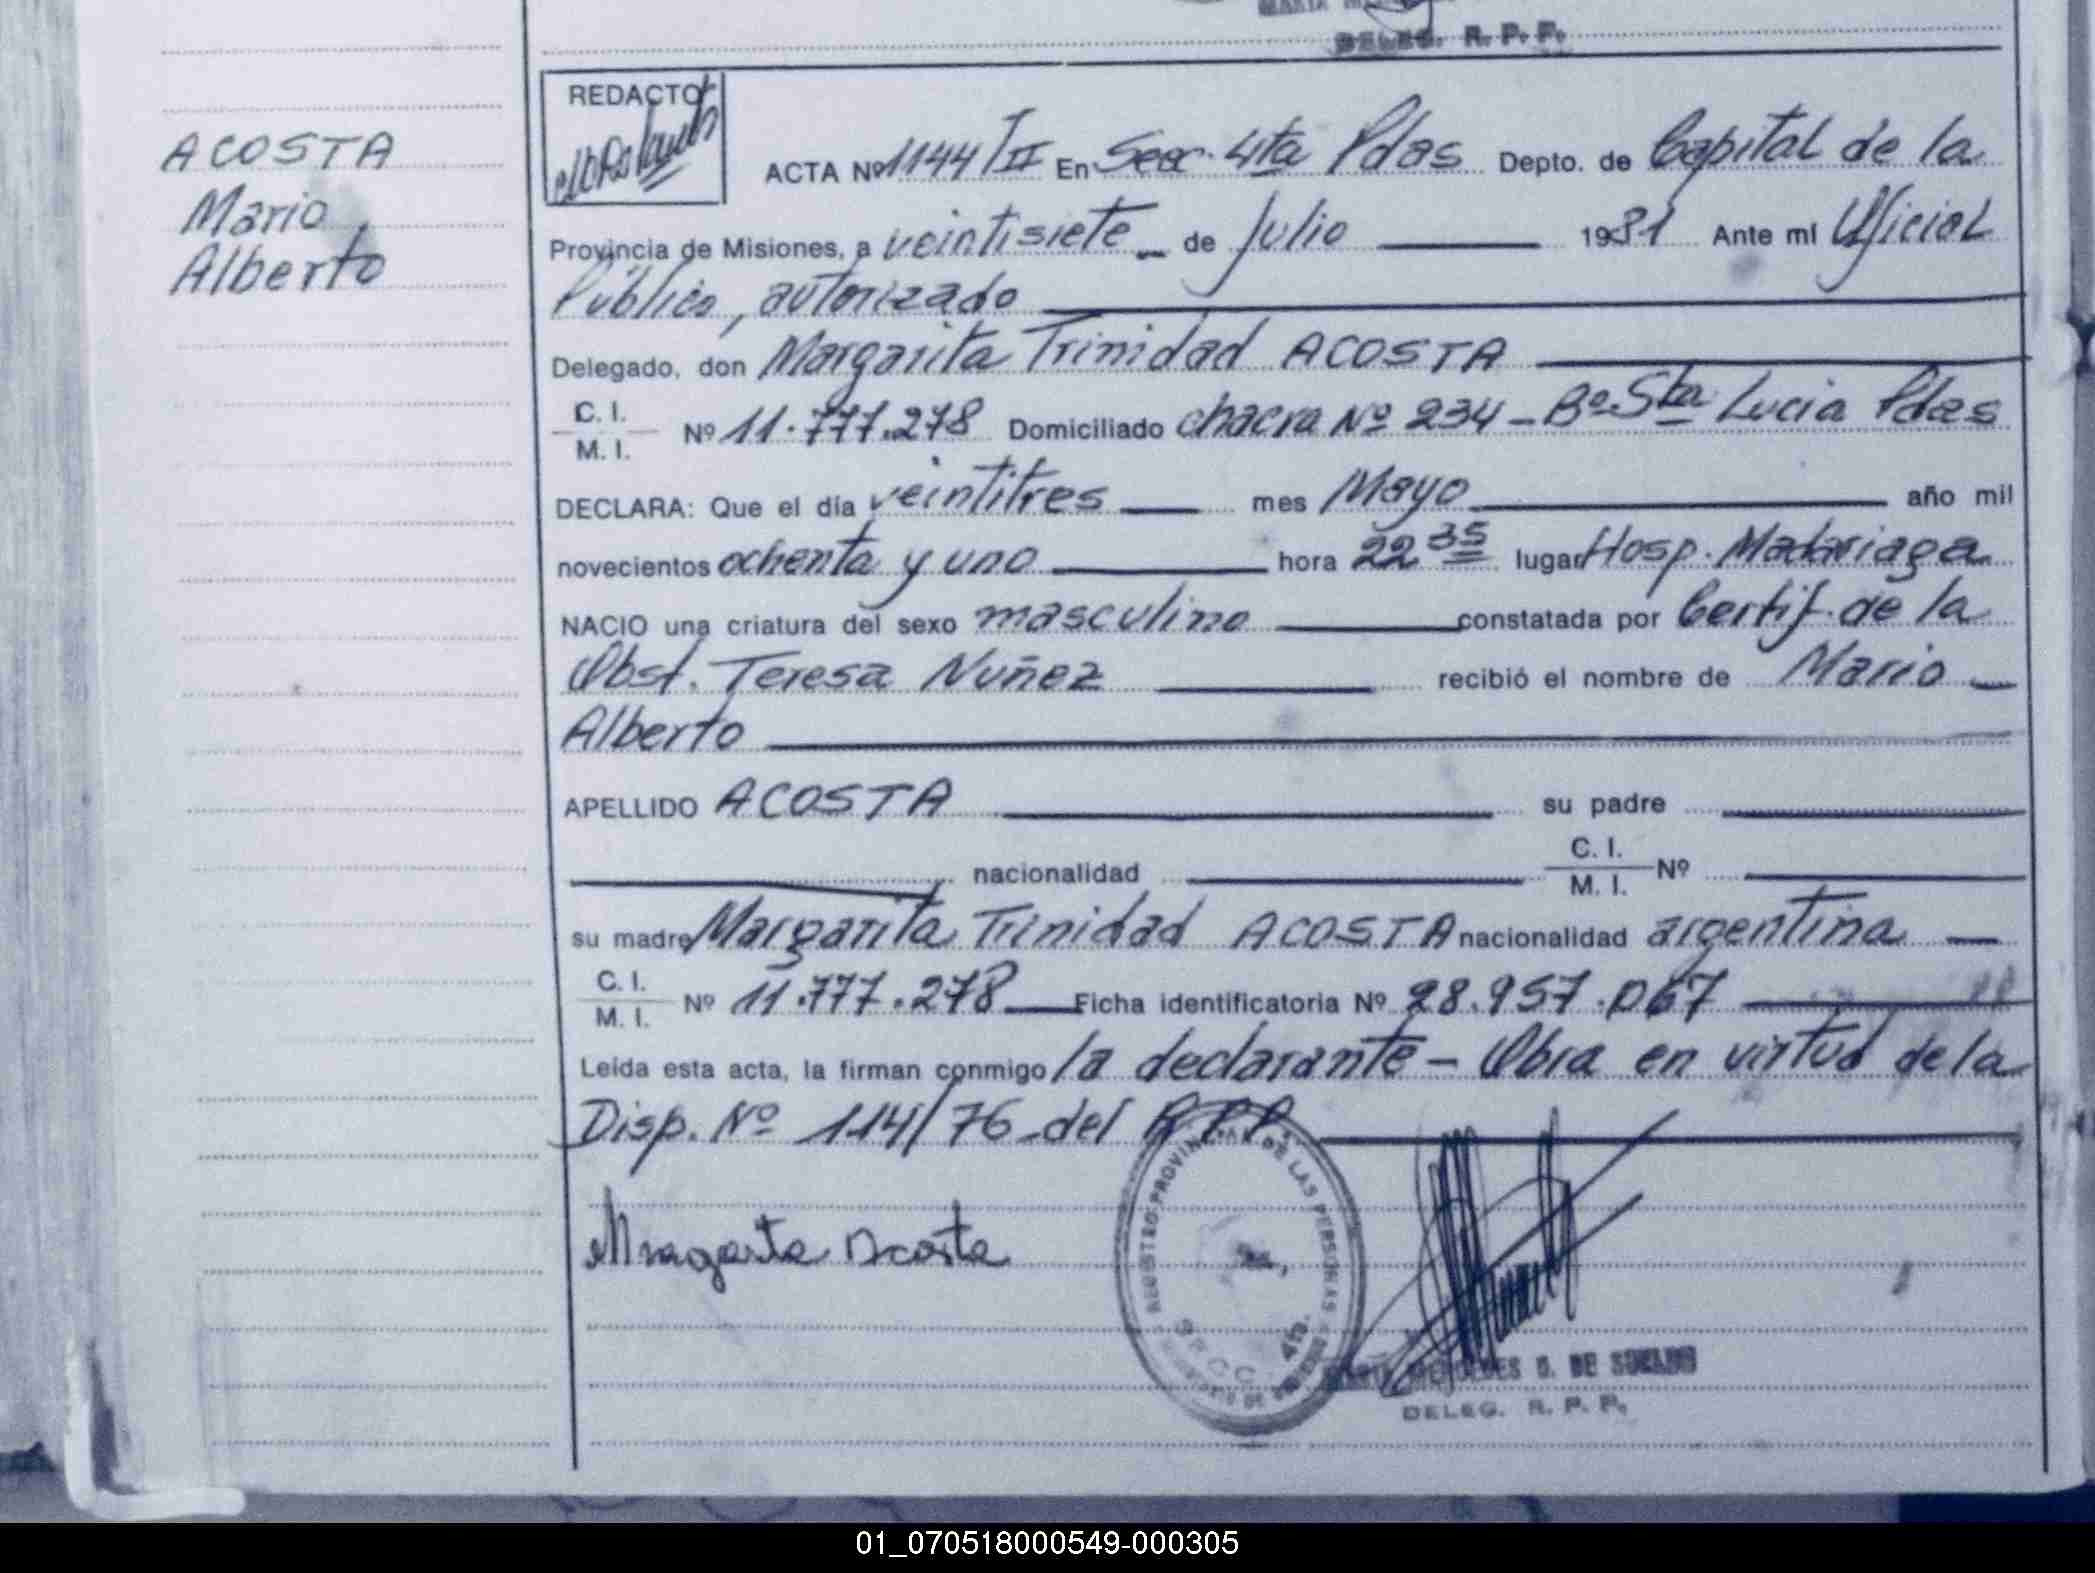 DELEG. R. P. F.
ACOSTA
Mario
Alberto
REDACTO
ACTA Nº 1144/II En Secc. 4ta Pdas Depto. de Capital de la
Provincia de Misiones, a veintisiete de Julio 1981 Ante mI Oficial
Público, autorizado
Delegado, don Margarita Trinidad ACOSTA
C. I.
M. I. Nº 11.777.278 Domiciliado chacra Nº 234 - Bº Sta Lucia Pdas
DECLARA: Que el día veintitres mes Mayo año mil
novecientos ochenta y uno hora 22 35 lugar Hosp. Madariaga
NACIO una criatura del sexo masculino constatada por Certif. de la
Obst. Teresa Nuñez recibió el nombre de Mario
Alberto
APELLIDO ACOSTA su padre
nacionalidad C. I.
M. I. Nº
su madre Margarita Trinidad ACOSTA nacionalidad argentina
C. I.
M. I. Nº 11.777.278 Ficha identificatoria Nº 28.957.067
Leída esta acta, la firman conmigo la declarante - Obra en virtud de la
Disp. Nº 114/76 del R.P.P.
REGISTRO PROVINCIAL DE LAS PERSONAS
4ta.
Mragarta Acosta
DE SUELDO
DELEG. R. P. P.
01_070518000549-000305